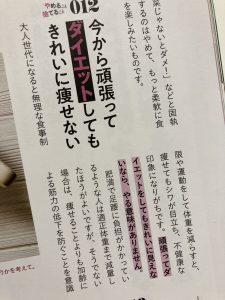 菜じゃないとダメ！」などと固執
するのはやめて、もっと柔軟に食
を楽しみたいものです。
やめること
捨てること
012
今から頑張って
ダイエットしても
きれいに痩せない
大人世代になると無理な食事制
限や運動をして体重を減らすと、
痩せてもシワが目立ち、不健康な
印象になりがちです。頑張ってダ
イエットをしてもきれいに見えな
いなら、やる意味がありません。
るような人は適正体重まで減量し
肥満で足腰に負担がかかってい
たほうがよいですが、そうでない
場合は、痩せることよりも加齢に
よる筋力の低下を防ぐことを意識
うかを考えて。